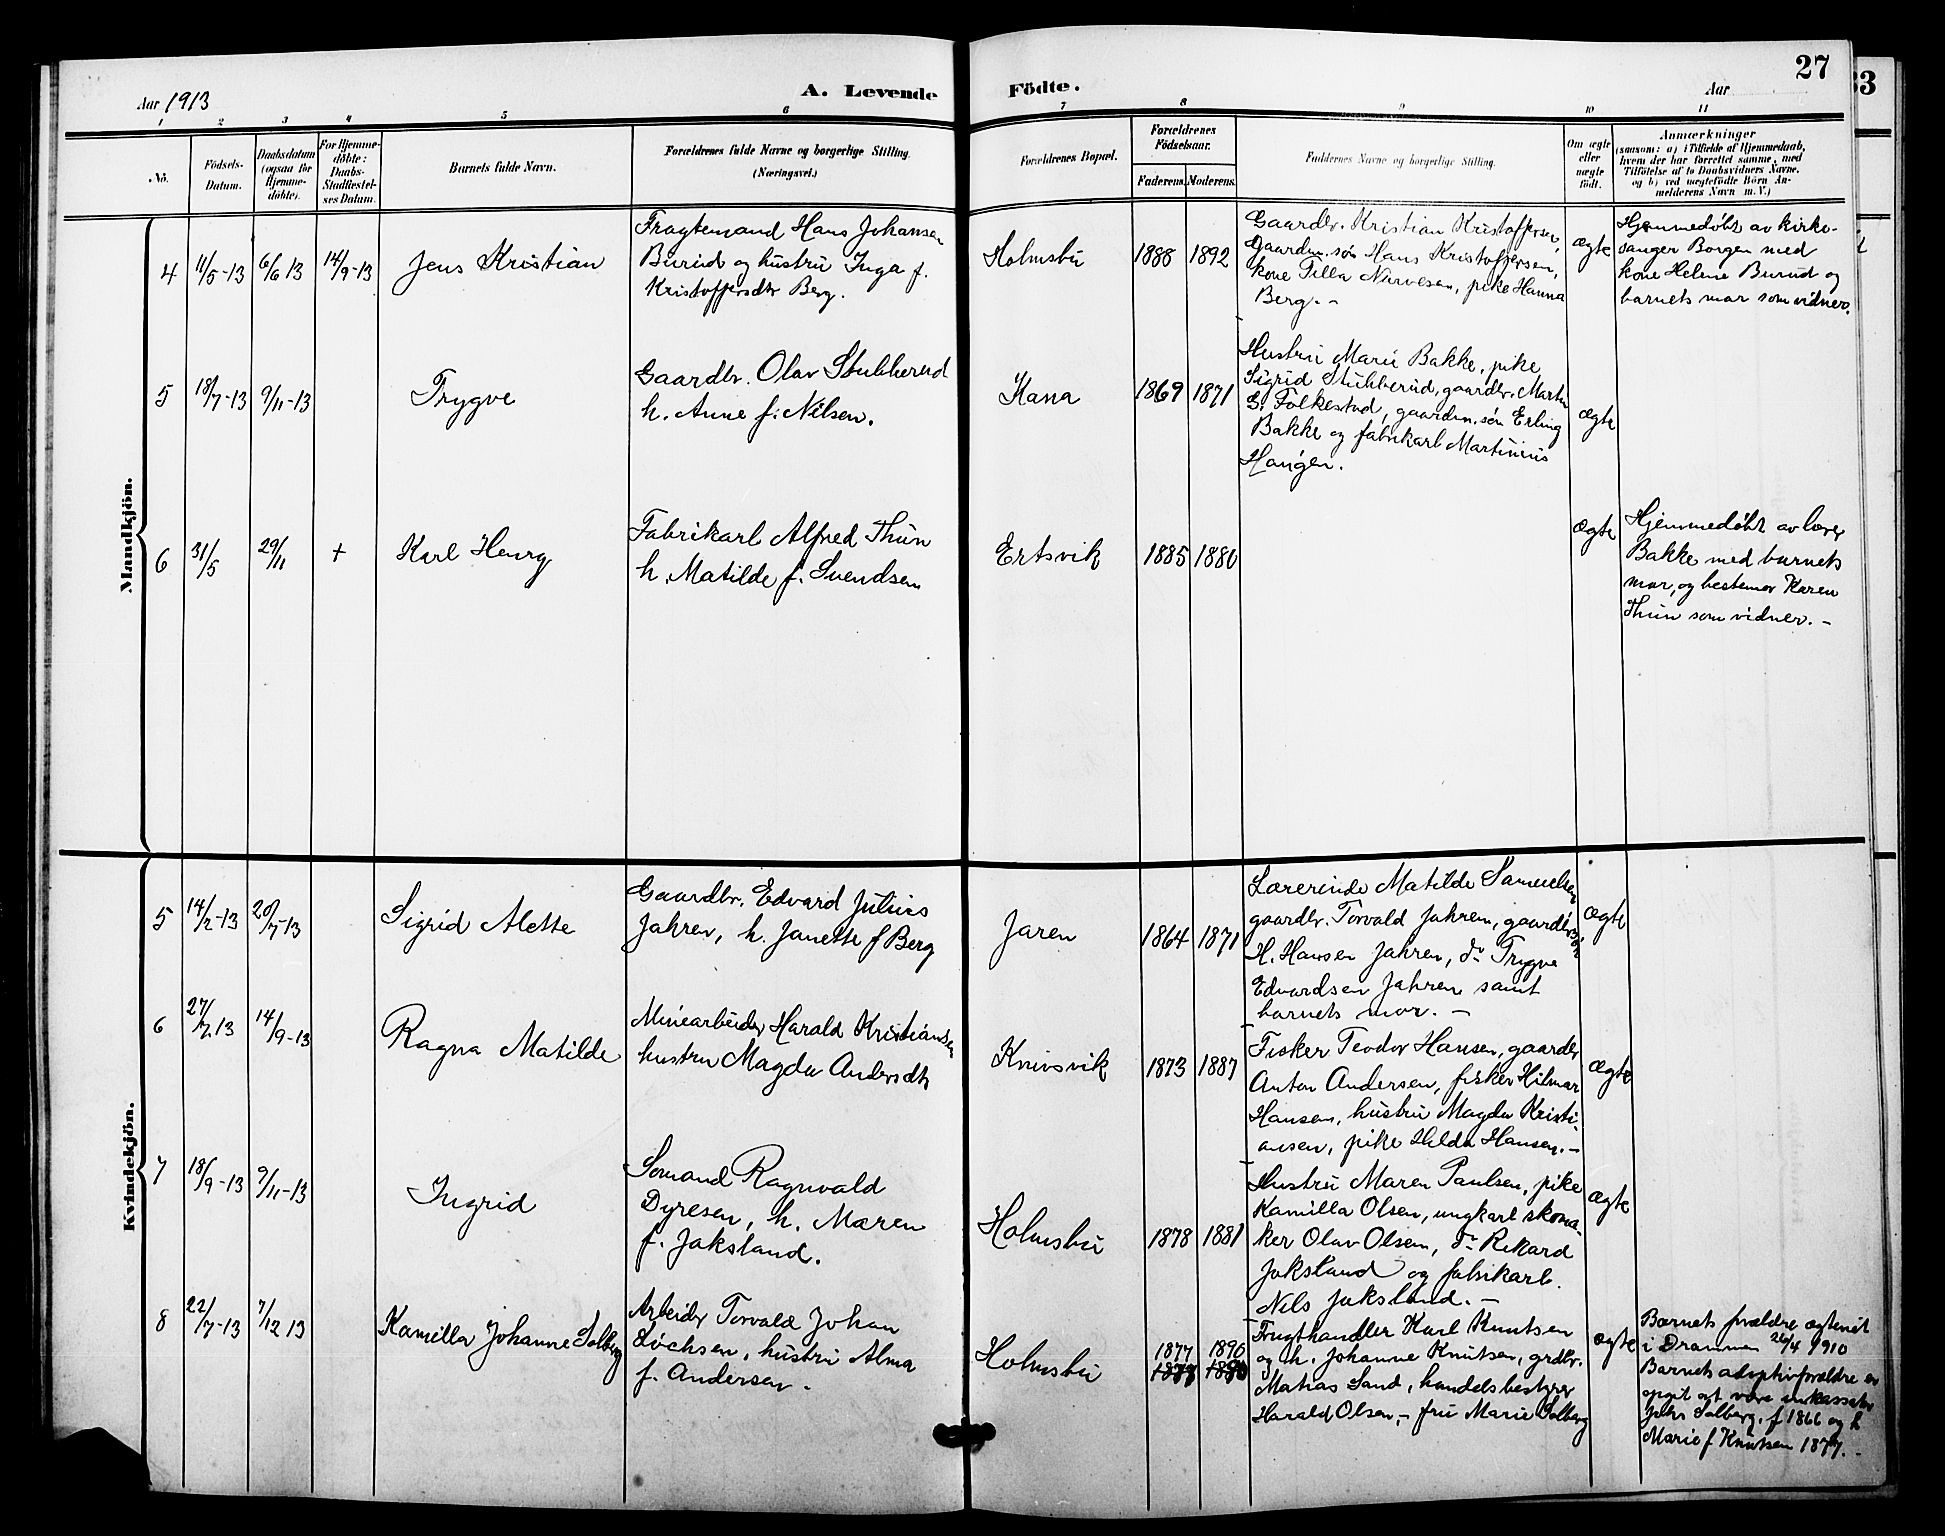 27
33
Aar 1913
A. Levende
Födte.
Aar
1 2 3 4 5 6 7 8 9 10 11
No.
Födsels-
Datum.
Daabsdatum
(ogsaa for
Hjemme-
døbte).
For Hjemme-
døbte:
Daabs-
Stadfæstel-
ses Datum.
Barnets fulde Navn.
Forældrenes fulde Navne og borgerlige Stilling.
(Næringsvei.)
Forældrenes Bopæl.
Forældrenes
Födselsaar.
Faderens.
Moderens.
Faddernes Navne og borgerlige Stilling.
Om ægte
eller
uægte
født.
Anmærkninger
(saasom: a) i Tilfælde af Hjemmedaab,
hvem der har forrettet samme, med
Tilføielse af to Daabsvidners Navne,
og b) ved uægtefödte Börn An-
melderens Navn m. V.)
Mandkjön.
4
11/5-13
6/6 13
14/9-13
Jens Kristian
Fragtemand Hans Johansen
Burud og hustru Inga f.
Kristoffersdtr Berg.
Holmsbu
1888
1892
Gaardbr. Kristian Kristoffersen,
gaardm. søn Hans Kristoffersen,
kone Tilla Narvesen, pike Hanna
Berg. -
ægte
Hjemmedøbt av kirke-
sanger Borgen med
kone Helene Burud og
barnets mor som vidner.
5
18/7-13
9/11-13
Trygve
Gaardbr. Olav Stubberud
h. Anne f. Nilsen.
Kana
1869
1871
Hustru Marie Bakke, pike
Sigrid Stubberud, gaardbr. Martin
G. Folkestad, gaardm. søn Erling
Bakke og fabrikarb Martinius
Haugen.
ægte
6
31/5
29/11
+
Karl Henry
Fabrikarb Alfred Thun
h. Matilde f. Svendsen
Ertsvik
1885
1880
ægte
Hjemmedøbt av lærer
Bakke med barnets
mor, og bestemor Karen
Thun som vidner. -
Kvindekjön.
5
14/2-13
20/7-13
Sigrid Alette
Gaardbr. Edvard Julius
Jahren, h. Janette f Berg
Jaren
1864
1871
Lærerinde Matilde Samuelsen
gaardbr. Torvald Jahren, gaardbr søn
H. Hansen Jahren, do Trygve
Edvardsen Jahren samt
barnets mor. -
ægte
6
27/7 13
14/9-13
Ragna Matilde
Minearbeider Harald Kristiansen
hustru Magda Andersdtr
Knivsvik
1873
1887
Fisker Teodor Hansen, gaardbr
Anton Andersen, fisker Hilmar
Hansen, hustru Magda Kristi-
ansen, pike Hilda Hansen. -
ægte
7
18/9-13
9/11-13
Ingrid
Sømand Ragnvald
Dyresen, h. Maren
f. Jaksland.
Holmsbu
1878
1881
Hustru Maren Paulsen, pike
Kamilla Olsen, ungkarl skoma-
ker Olav Olsen, do Rikard
Jaksland og fabrikarb.
Nils Jaksland. -
ægte
8
22/7-13
7/12 13
Kamilla Johanne Solberg
Arbeider Torvald Johan
Lochsen, hustru Alma
f. Andersen.
Holmsbu
1877
1890
Frugthandler Karl Knutsen
og h. Johanne Knutsen, grdbr.
Matias Sand, handelsbestyrer
Harald Olsen, - fru Marie Solberg
ægte
Barnets forældre ægteviet
i Drammen 26/4 1910
Barnets adoptivforældre er
opgit at være inkassator
Johs Solberg, f 1866 og h
Marie f Knutsen 1877. -